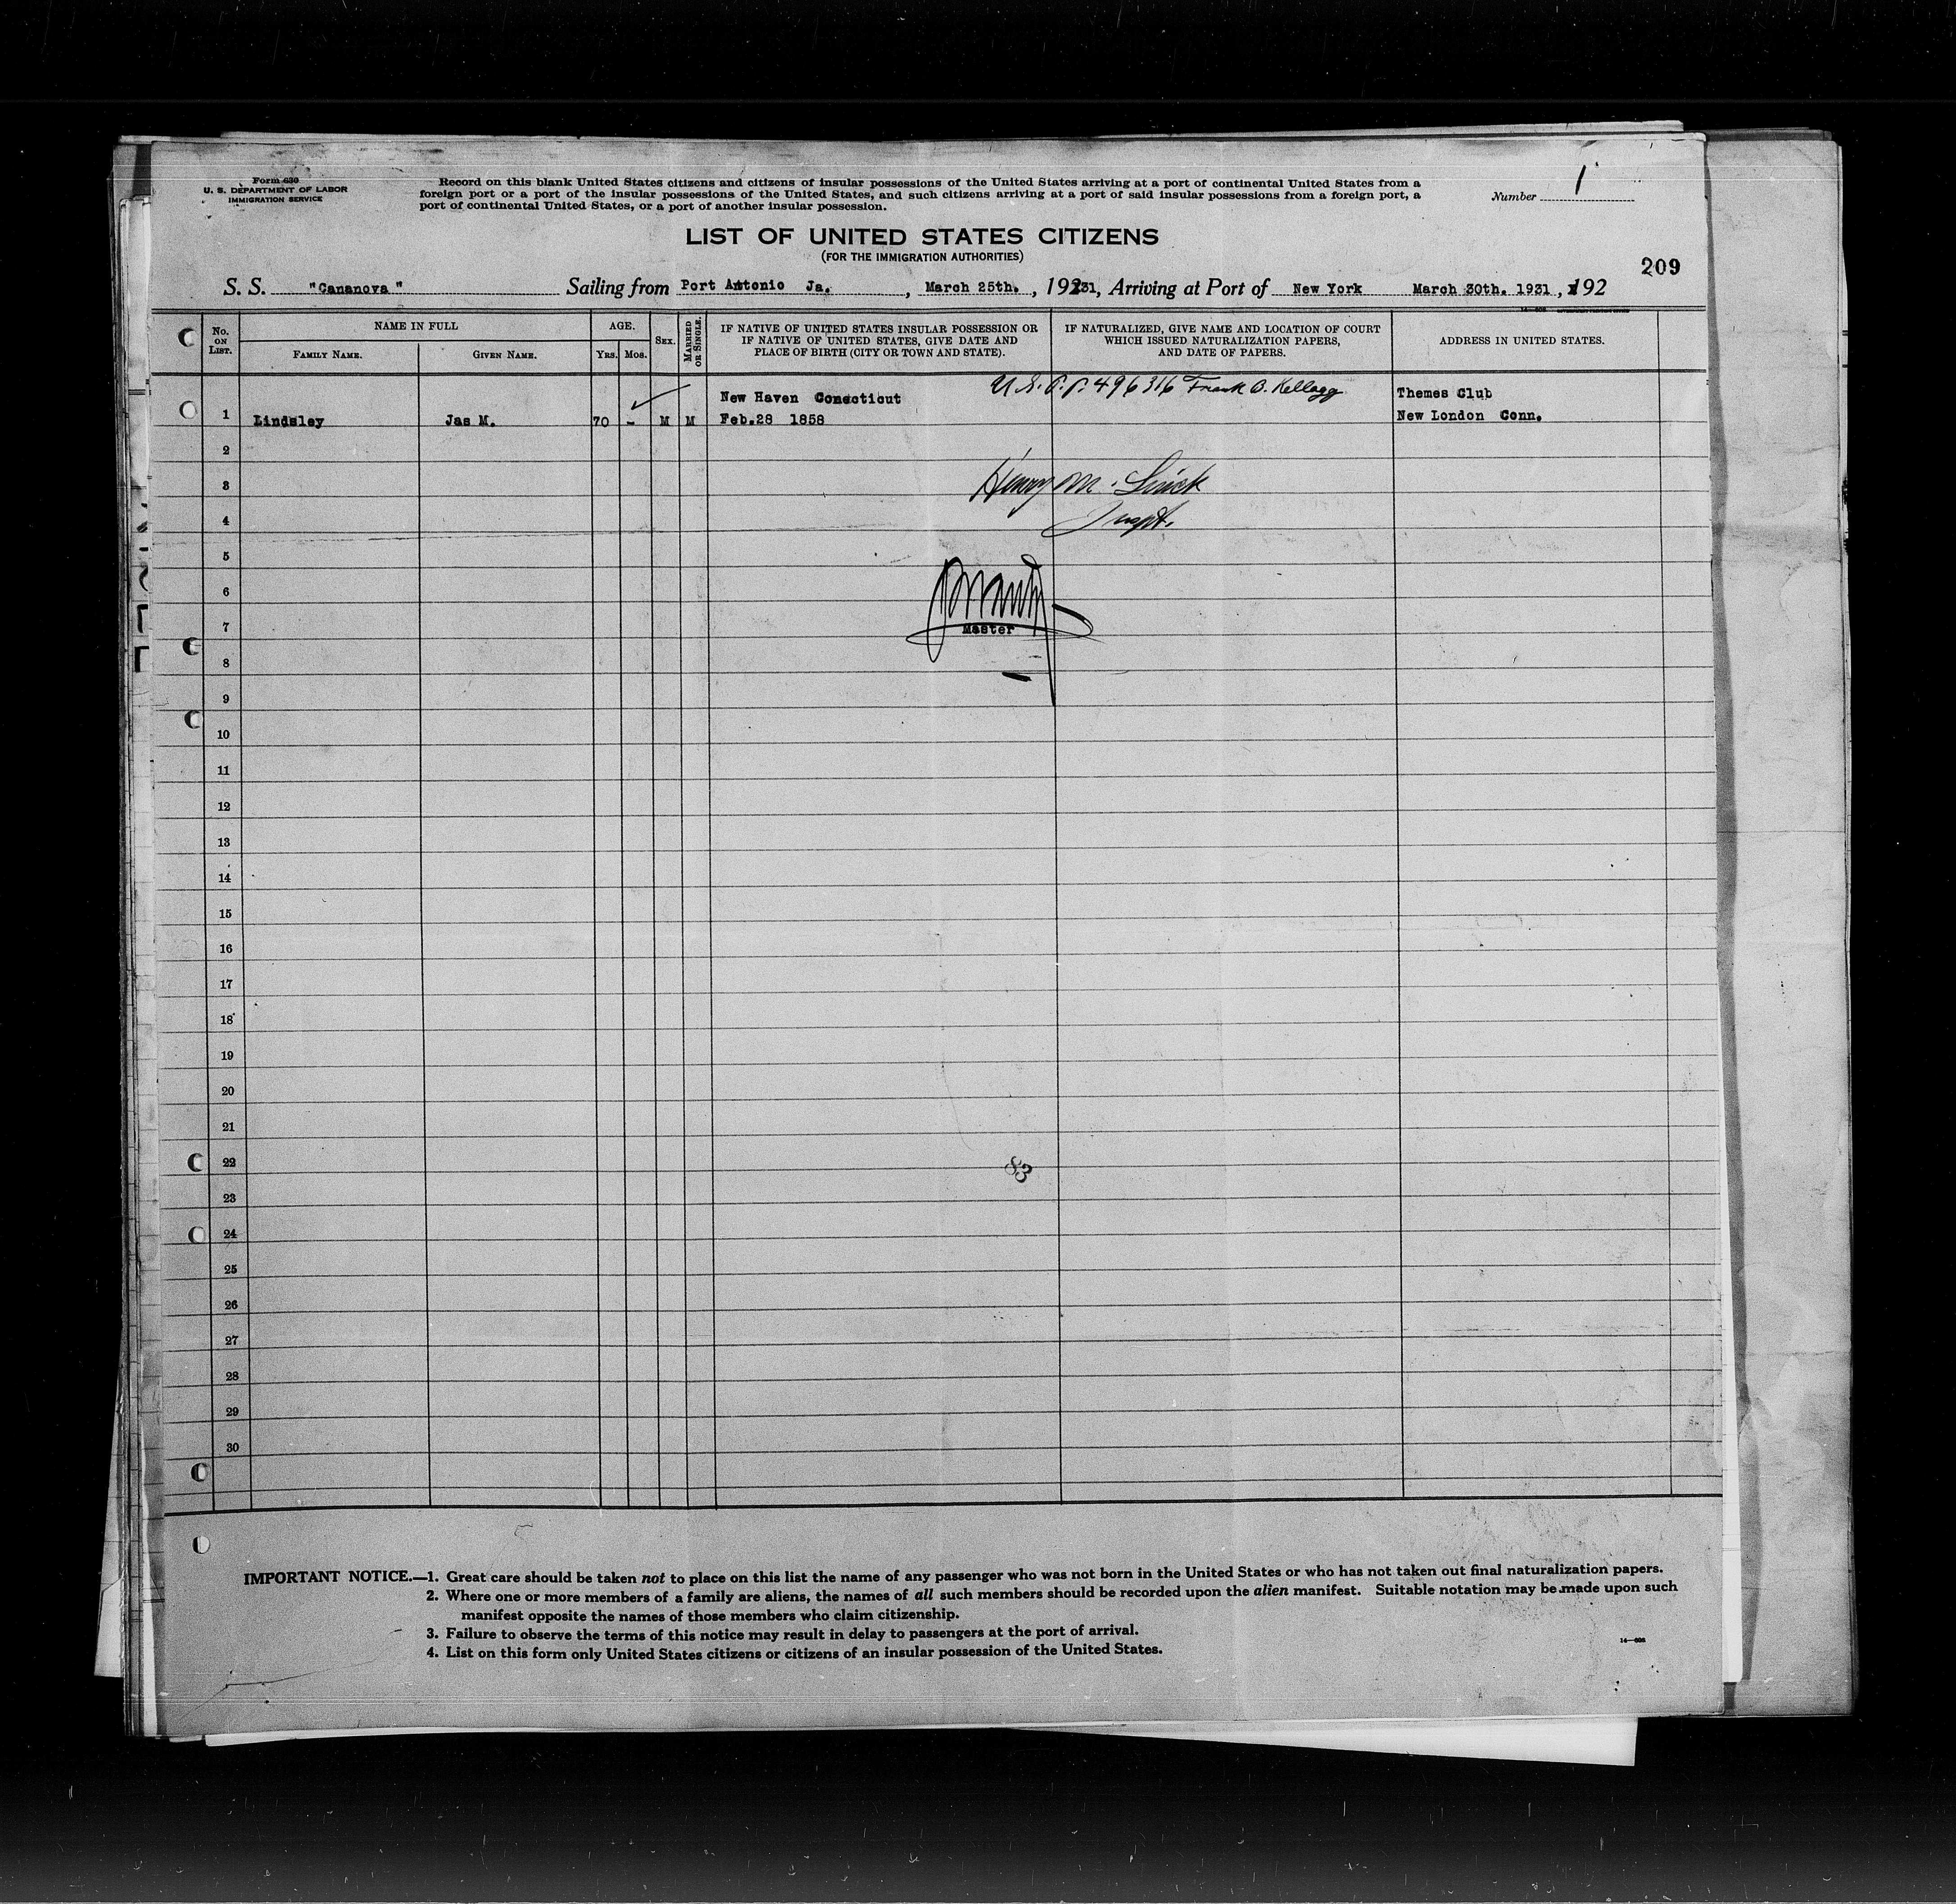 Form 630
U. S. DEPARTMENT OF LABOR
IMMIGRATION SERVICE
Record on this blank United States citizens and citizens of insular possessions of the United States arriving at a port of continental United States from a
foreign port or a port of the insular possessions of the United States, and such citizens arriving at a port of said insular possessions from a foreign port, a
port of continental United States, or a port of another insular possession.
Number 1
LIST OF UNITED STATES CITIZENS
(FOR THE IMMIGRATION AUTHORITIES)
209
S. S. "Cananova" Sailing from Port Antonio Ja. , March 25th. , 19231, Arriving at Port of New York March 30th. 1931 , 192
No. ON LIST.
NAME IN FULL
FAMILY NAME.
GIVEN NAME.
AGE.
YRS.
MOS.
SEX.
MARRIED OR SINGLE.
IF NATIVE OF UNITED STATES INSULAR POSSESSION OR
IF NATIVE OF UNITED STATES, GIVE DATE AND
PLACE OF BIRTH (CITY OR TOWN AND STATE).
IF NATURALIZED, GIVE NAME AND LOCATION OF COURT
WHICH ISSUED NATURALIZATION PAPERS,
AND DATE OF PAPERS.
ADDRESS IN UNITED STATES.
U.S. P.P. 496316 Frank B. Kellogg
New Haven Conecticut Themes Club
1 Lindsley Jas M. 70 - M M Feb.28 1858 New London Conn.
2
3 Henry M.
4 Inspt.
5
6
7 Master
8
9
10
11
12
13
14
15
16
17
18
19
20
21
22 83
23
24
25
26
27
28
29
30
IMPORTANT NOTICE.—1. Great care should be taken not to place on this list the name of any passenger who was not born in the United States or who has not taken out final naturalization papers.
2. Where one or more members of a family are aliens, the names of all such members should be recorded upon the alien manifest. Suitable notation may be made upon such
manifest opposite the names of those members who claim citizenship.
3. Failure to observe the terms of this notice may result in delay to passengers at the port of arrival.
4. List on this form only United States citizens or citizens of an insular possession of the United States.